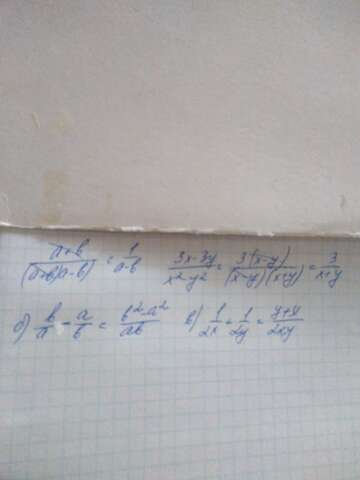 (a+b)/((a+b)(a-b)) = 1/(a-b)   (3x-3y)/(x²-y²) = 3(x-y)/((x-y)(x+y)) = 3/(x+y)
б) b/a - a/b = (b²-a²)/ab   в) 1/2x + 1/2y =